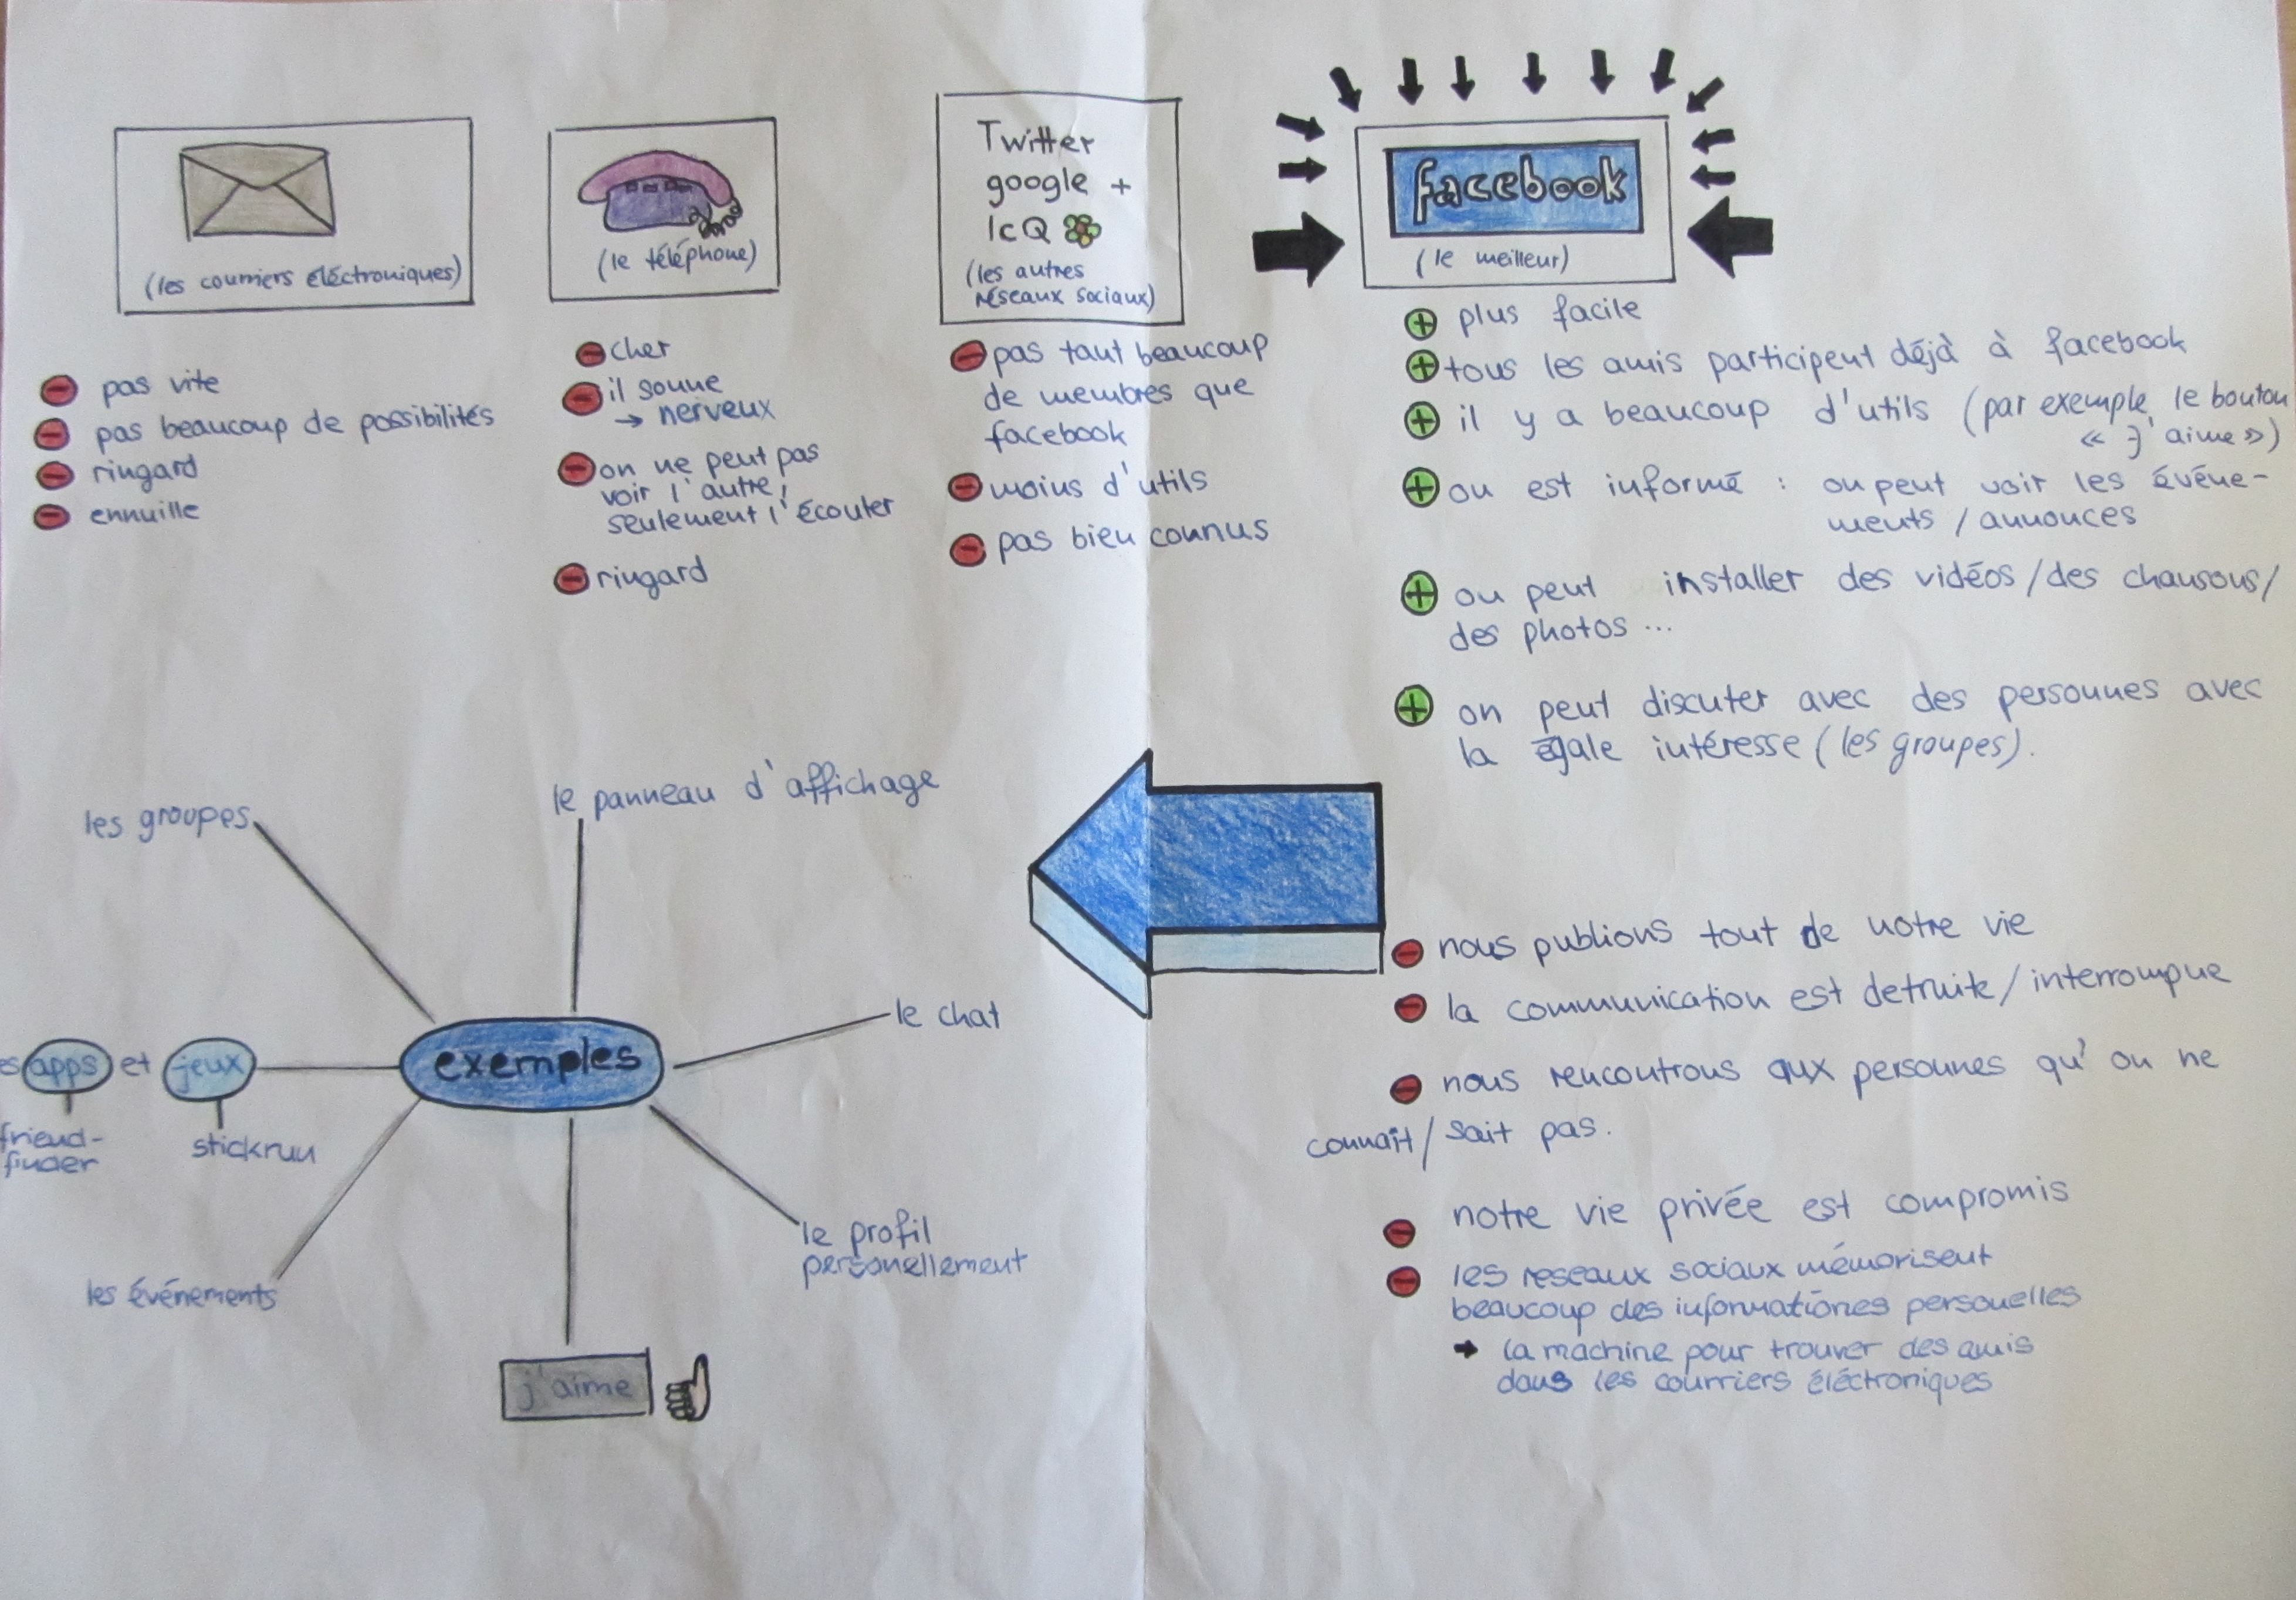 (les courriers éléctroniques)
pas vite
pas beaucoup de possibilités
ringard
ennuille
(le téléphone)
cher
il sonne
→ nerveux
on ne peut pas
voir l'autre,
seulement l'écouter
ringard
Twitter
google +
IcQ
(les autres
réseaux sociaux)
pas taut beaucoup
de membres que
facebook
moins d'utils
pas bien connus
facebook
(le meilleur)
plus facile
tous les amis participent déjà à facebook
il y a beaucoup d'utils (par exemple le bouton
« j'aime »)
on est informé : on peut voir les événe-
ments / annonces
on peut installer des vidéos / des chansons /
des photos ...
on peut discuter avec des personnes avec
la égale intéresse (les groupes).
nous publions tout de notre vie
la communication est detruite / interrompue
nous rencontrons aux personnes qu'on ne
connaît / sait pas.
notre vie privée est compromis
les reseaux sociaux mémorisent
beaucoup des informationes personelles
→ la machine pour trouver des amis
dans les courriers éléctroniques
exemples
les groupes
le panneau d'affichage
le chat
le profil
personellement
j'aime
les événements
es apps et jeux
friend-
finder
stickrun